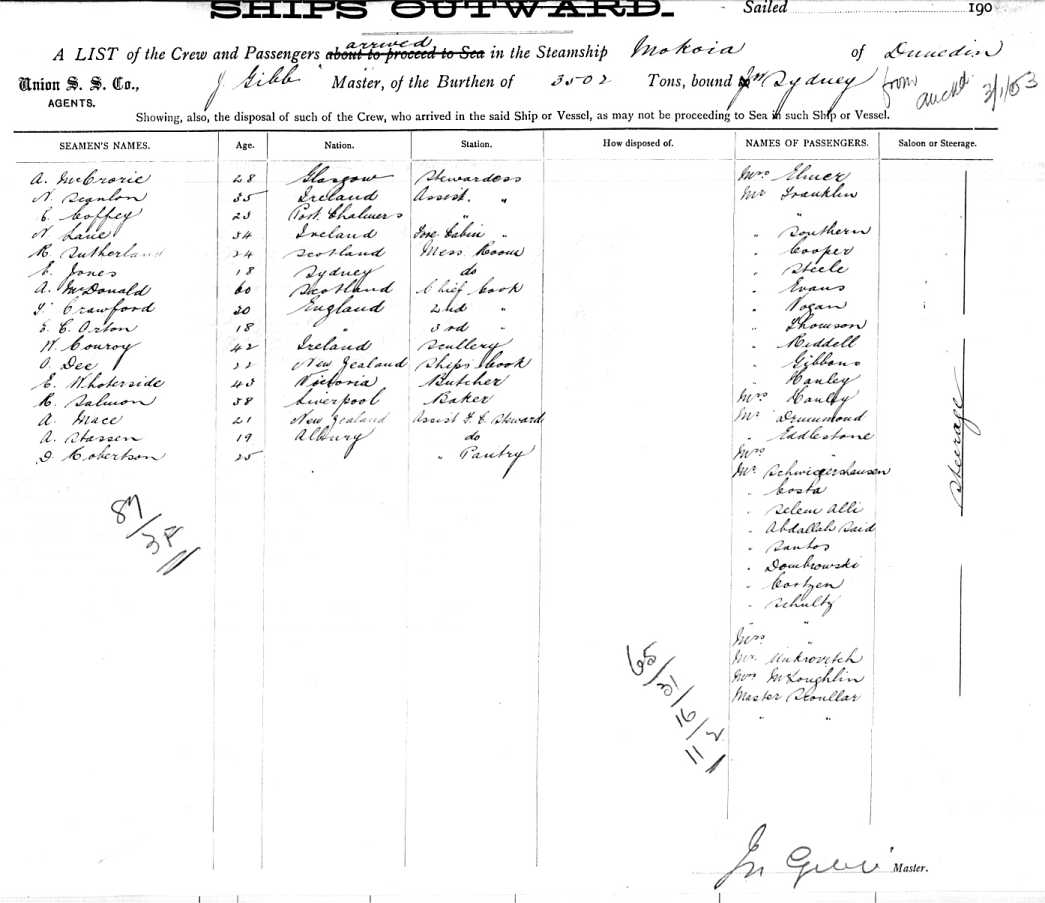 SHIPS OUTWARD. Sailed 190
A LIST of the Crew and Passengers about to proceed to Sea arrived in the Steamship Mokoia of Dunedin
Union S. S. Co., J Gibb Master, of the Burthen of 3502 Tons, bound Sydney from Auckd 3/1/03
AGENTS.
Showing, also, the disposal of such of the Crew, who arrived in the said Ship or Vessel, as may not be proceeding to Sea in such Ship or Vessel.
SEAMEN'S NAMES. Age. Nation. Station. How disposed of. NAMES OF PASSENGERS. Saloon or Steerage.
A. McCrorie 28 Glasgow Stewardess Mrs Elmer
N. Scanlon 35 Ireland Assist. " Mr Franklin
C. Coffey 23 Port Chalmers " "
N. Lane 34 Ireland Fore Cabin " " Southern
R. Sutherland 24 Scotland Mess Room " Cooper
E. Jones 18 Sydney do " Steele
A. McDonald 60 Scotland Chief Cook " Evans
Crawford 20 England 2nd " " Vogan
E. C. Orton 18 " 3rd " " Thomson
W. Conroy 42 Ireland Scullery " Riddell
O. Dee 22 New Zealand Ships Cook " Gibbons
E. 43 Victoria Butcher " Hanley
R. Salmon 38 Liverpool Baker Mrs Hanley
A. Mace 21 New Zealand Assist F. C. Steward Mr Drummond
A. Stassen 19 Albury do " Eddlestone
D. Robertson 25 " Pantry Mrs "
Mr
" Costa
" Selem Alli
" Abdallah Said
" Santos
" Dombrowski
" Coetzen
" Schultz
Mrs "
Mr. Unkrovitch
Mrs McLoughlin
Master Scoullar
" "
Steerage
87/38
65/31/16/2
11
Jn Gibb Master.